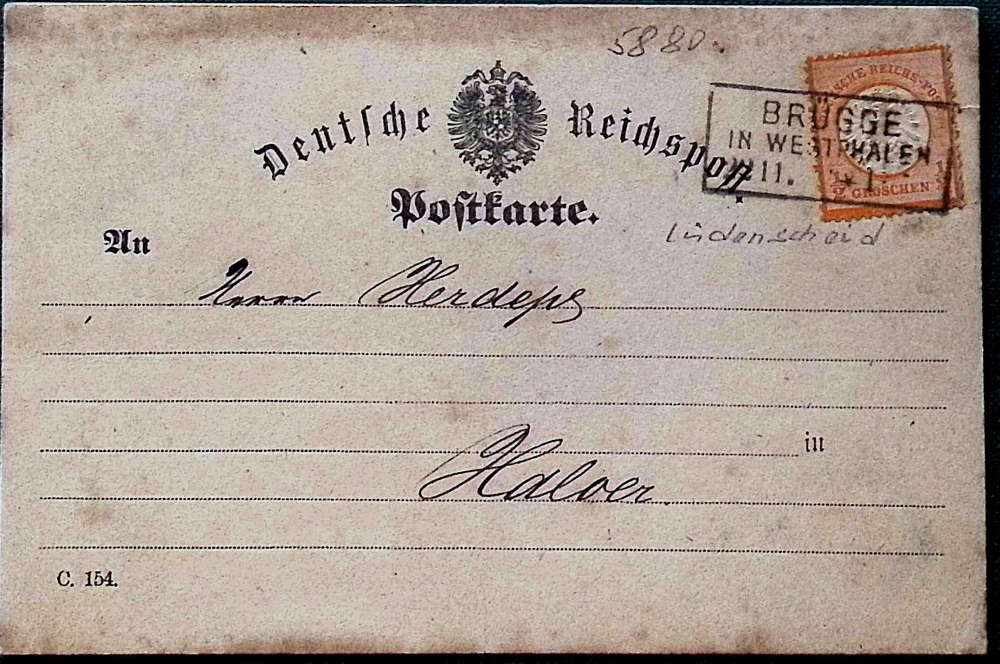 5880.
Deutsche Reichspost.
DEUTSCHE REICHS-POST
½ GROSCHEN ½
BRÜGGE
IN WESTPHALEN
11. * 1
Postkarte.
Lüdenscheid
An
Herrn
in
Halver.
C. 154.